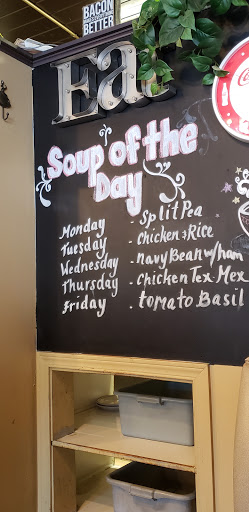 BACON
BETTER
Eat
Soup of the
Day
Monday - Split Pea
Tuesday - Chicken & Rice
Wednesday - Navy Bean w/ ham
Thursday - Chicken Tex-Mex
Friday - tomato Basil